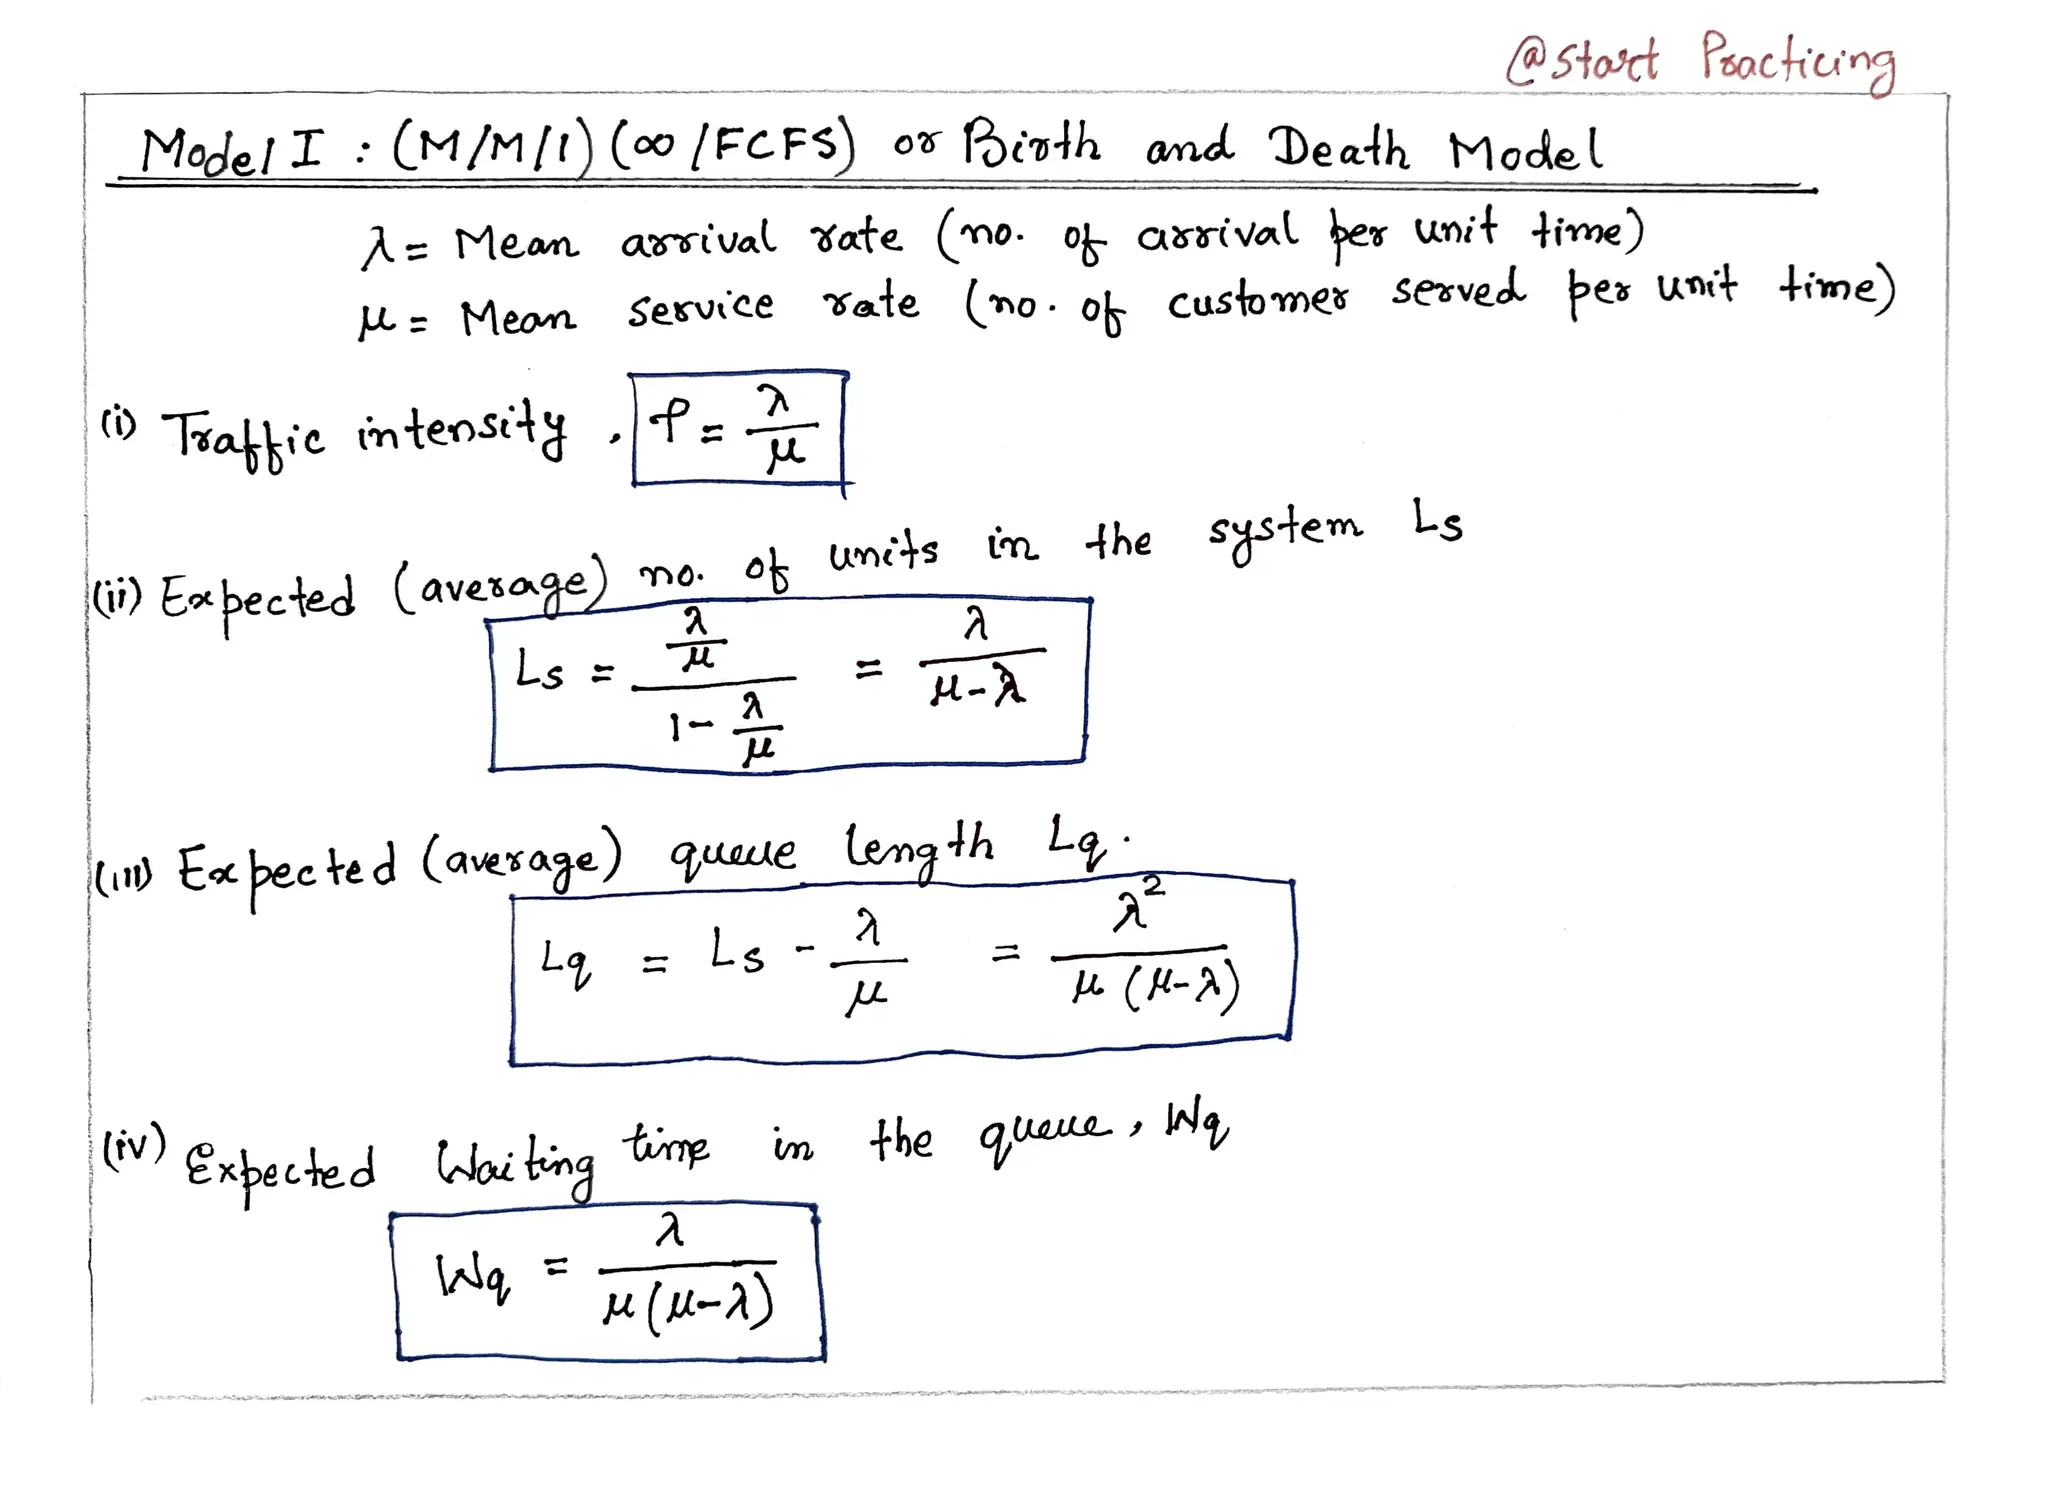 @Start Practicing
Model I : (M/M/1) (∞/FCFS) or Birth and Death Model
λ = Mean arrival rate (no. of arrival per unit time)
μ = Mean service rate (no. of customer served per unit time)
(i) Traffic intensity, ρ = λ/μ
(ii) Expected (average) no. of units in the system Ls
Ls = (λ/μ)/(1 - λ/μ) = λ/(μ-λ)
(iii) Expected (average) queue length Lq.
Lq = Ls - λ/μ = λ²/(μ(μ-λ))
(iv) Expected Waiting time in the queue, Wq
Wq = λ/(μ(μ-λ))